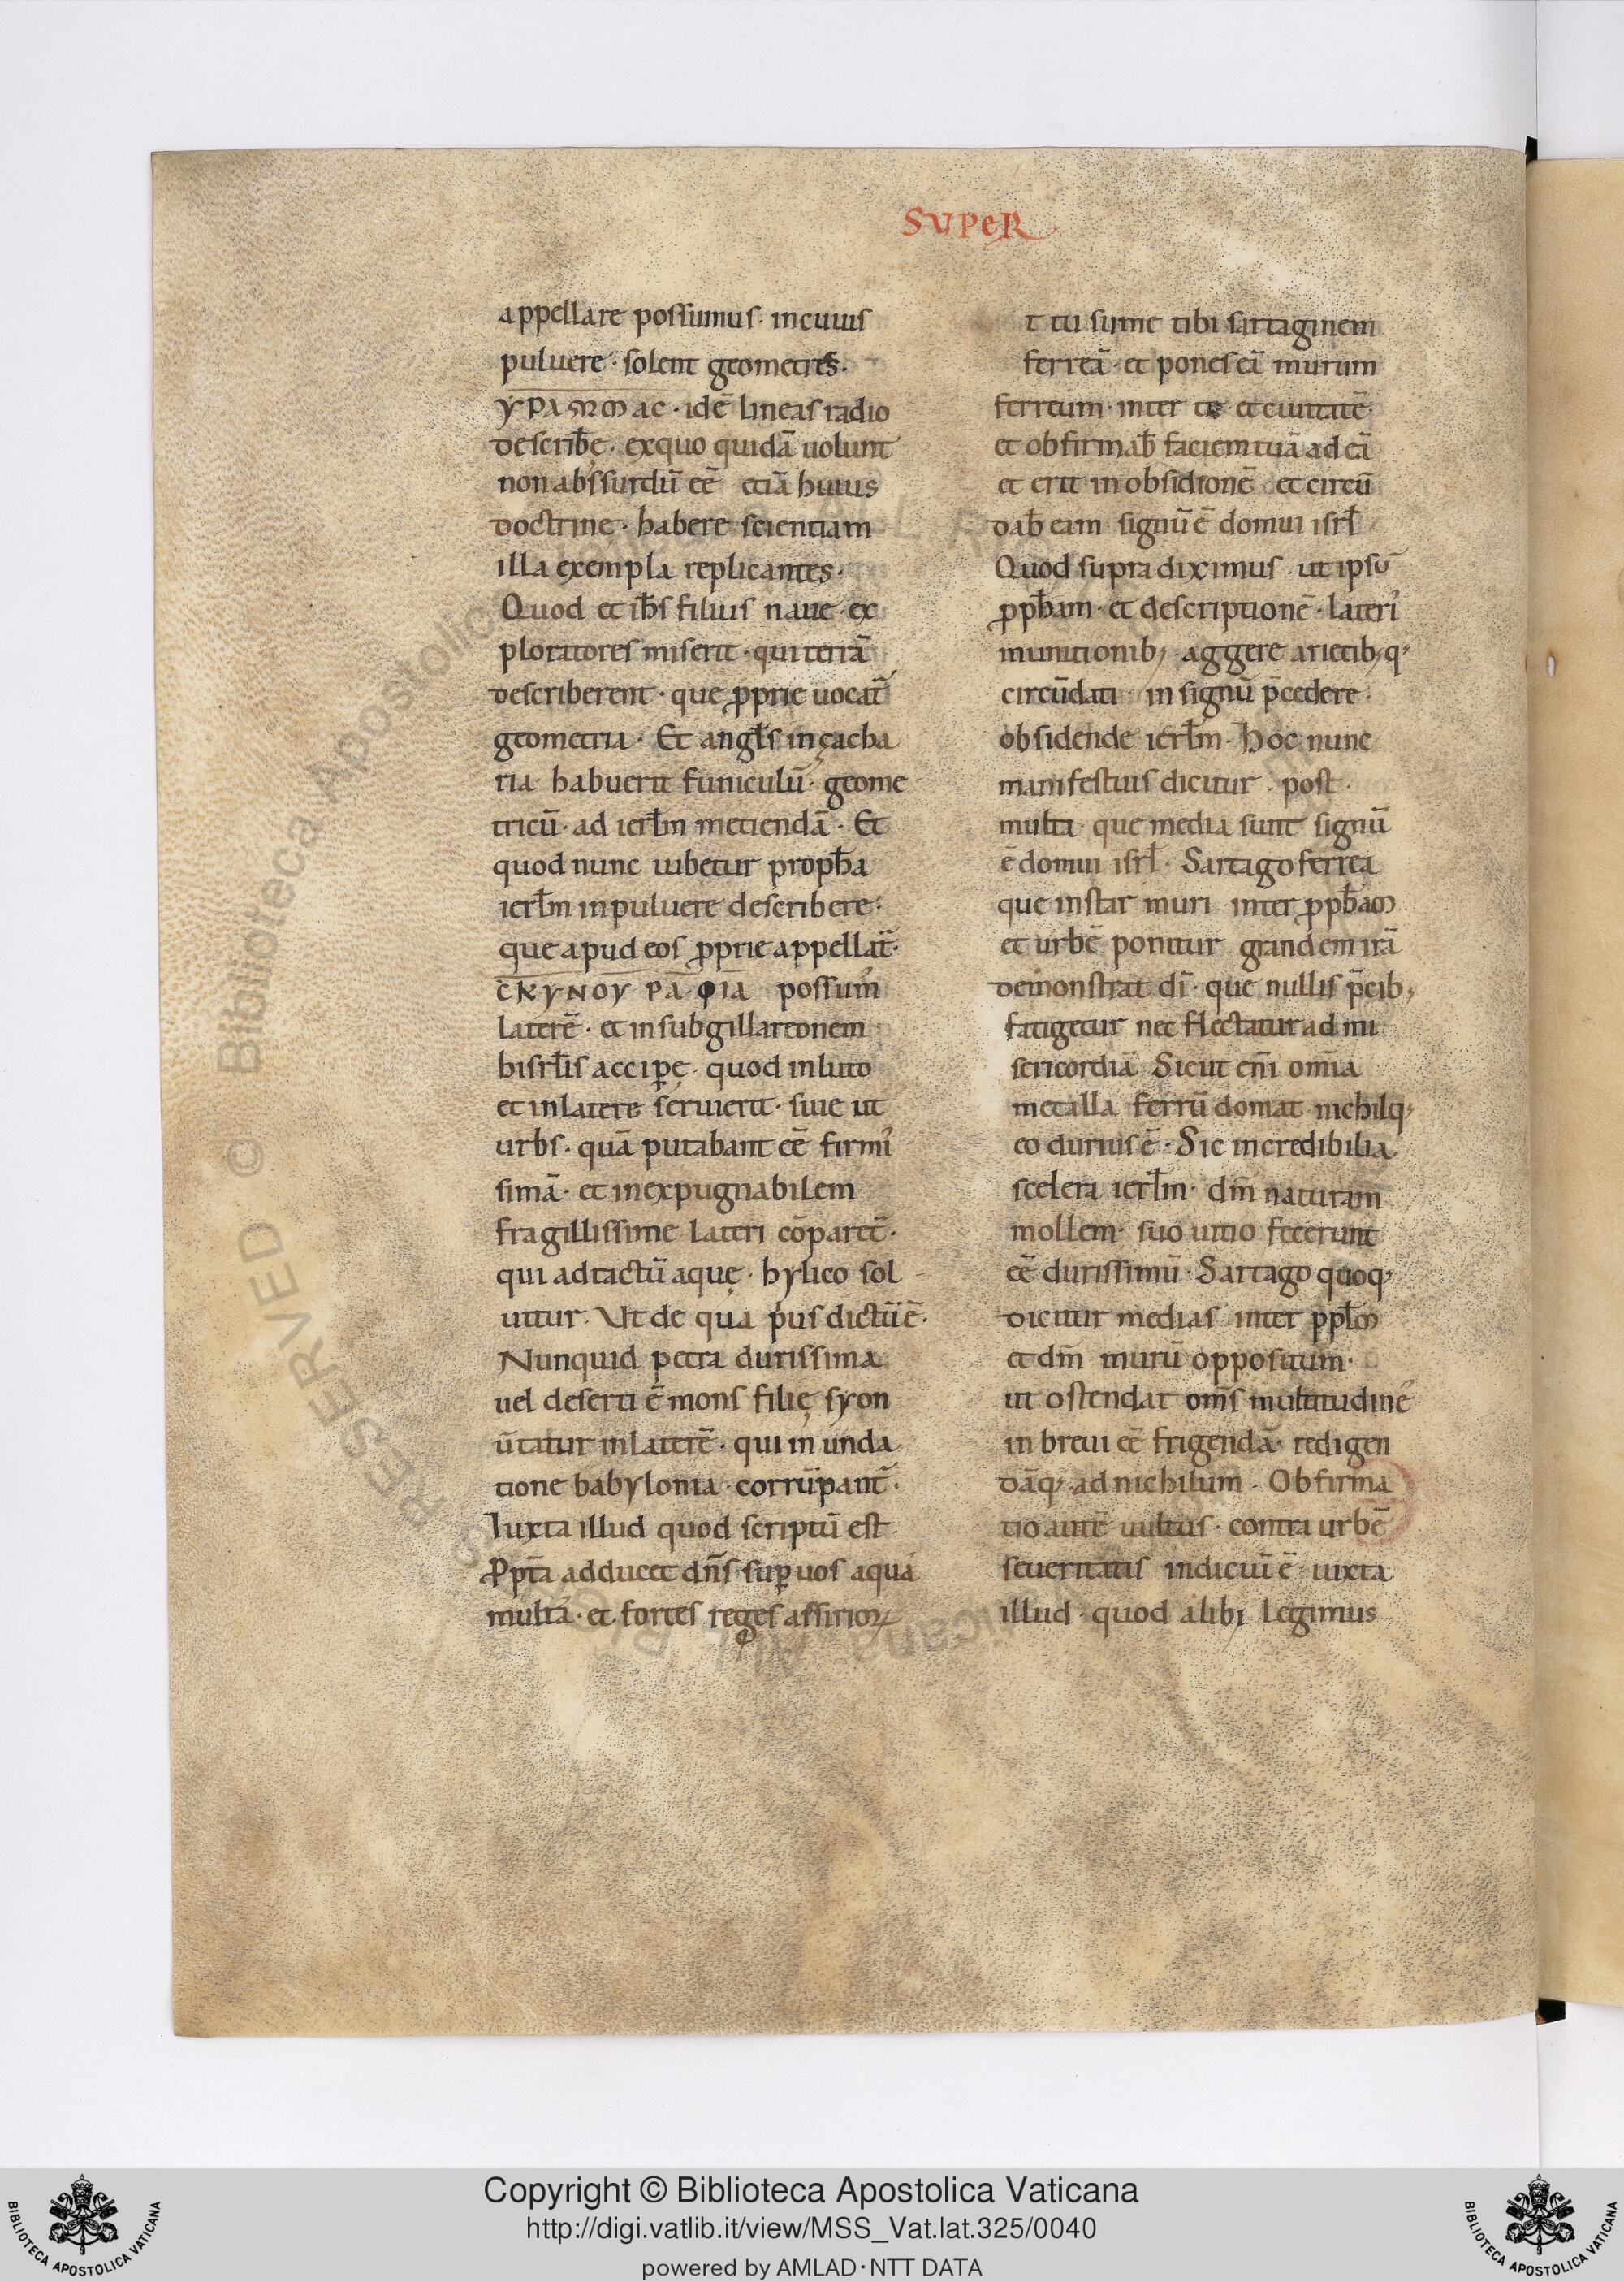 SVPER
appellare possumus· incuius
puluere· solent geometres·
idē lineas radio
describ̄e· exquo quidā uolunt
non abssurdū eē etiā huius
doctrine· habere scientiam
illa exempla replicantes·
Quod et ih̄s filius naue· ex
ploratores miserit· qui terrā
describerent· que ꝓprie uocat̄
geometria· Et angl̄s inçacha
ria habuerit funiculū· geome
tricū· ad ierl̄m metiendā· Et
quod nunc iubetur proph̄a
ierl̄m inpuluere describere·
que apud eos ꝓprie appellat̄·
possum
laterē· et in subgillareonem
bisrl̄is accip̱e· quod inluto
et inlatere seruierit· siue ut
urbs· quā putabant eē firmi
simā· et inexpugnabilem
fragillissime lateri cōparet̄·
qui adtactū aquę· hylico sol
uitur· Ut de qua pus dictū ē·
Nunquid petra durissima
uel deserti ē mons filię syon
ūtatur inlaterē· qui in unda
tione babylonia· corrūpant̄·
Iuxta illud quod scriptū est
Ꝓpt̄a adducet dn̄s suꝑ uos aquā
multā· et fortes reges assirioꝝ
t tu sume tibi sartaginem
ferreā· et pones eā murum
ferreum· inter te et ciuitatē·
et obfirmab̄ faciem tuā ad eā
et erit in obsidionē et circū
dab̄ eam signū ē domui isrl̄
Quod supra diximus· ut ipsū
ꝓph̄am· et descriptionē· lateri
munitionib; aggere arietib;q;
circūdati in signū p̄cedere·
obsidende ierl̄m· Hoc nunc
manifestius dicitur· post·
multa que media sunt signū
ē domui isrl̄· Sartago ferrea
que instar muri inter ꝓph̄am
et urbē ponitur grandem irā
demonstrat dī· que nullis p̄cib;
fatigetur nec flectatur ad mi
sericordiā Sicut eni̅ om̄ia
metalla ferrū domat nichilq;
eo durius ē· Sic incredibilia
scelera ierl̄m· dm̄ naturam
mollem· suo uitio fecerunt
eē durissimū· Sartago quoq;
dicitur medias inter ppl̄m
et dm̄ murū oppositum·
ut ostendat om̄s multitudinē
in breui eē frigendā· redigen
dāq; ad nichilum· Obfirma
tio autē uultus· contra urbē
seueritatis indiciū ē iuxta
illud· quod alibi legimus
BIBLIOTECA APOSTOLICA VATICANA
Copyright © Biblioteca Apostolica Vaticana
http://digi.vatlib.it/view/MSS_Vat.lat.325/0040
powered by AMLAD·NTT DATA
BIBLIOTECA APOSTOLICA VATICANA